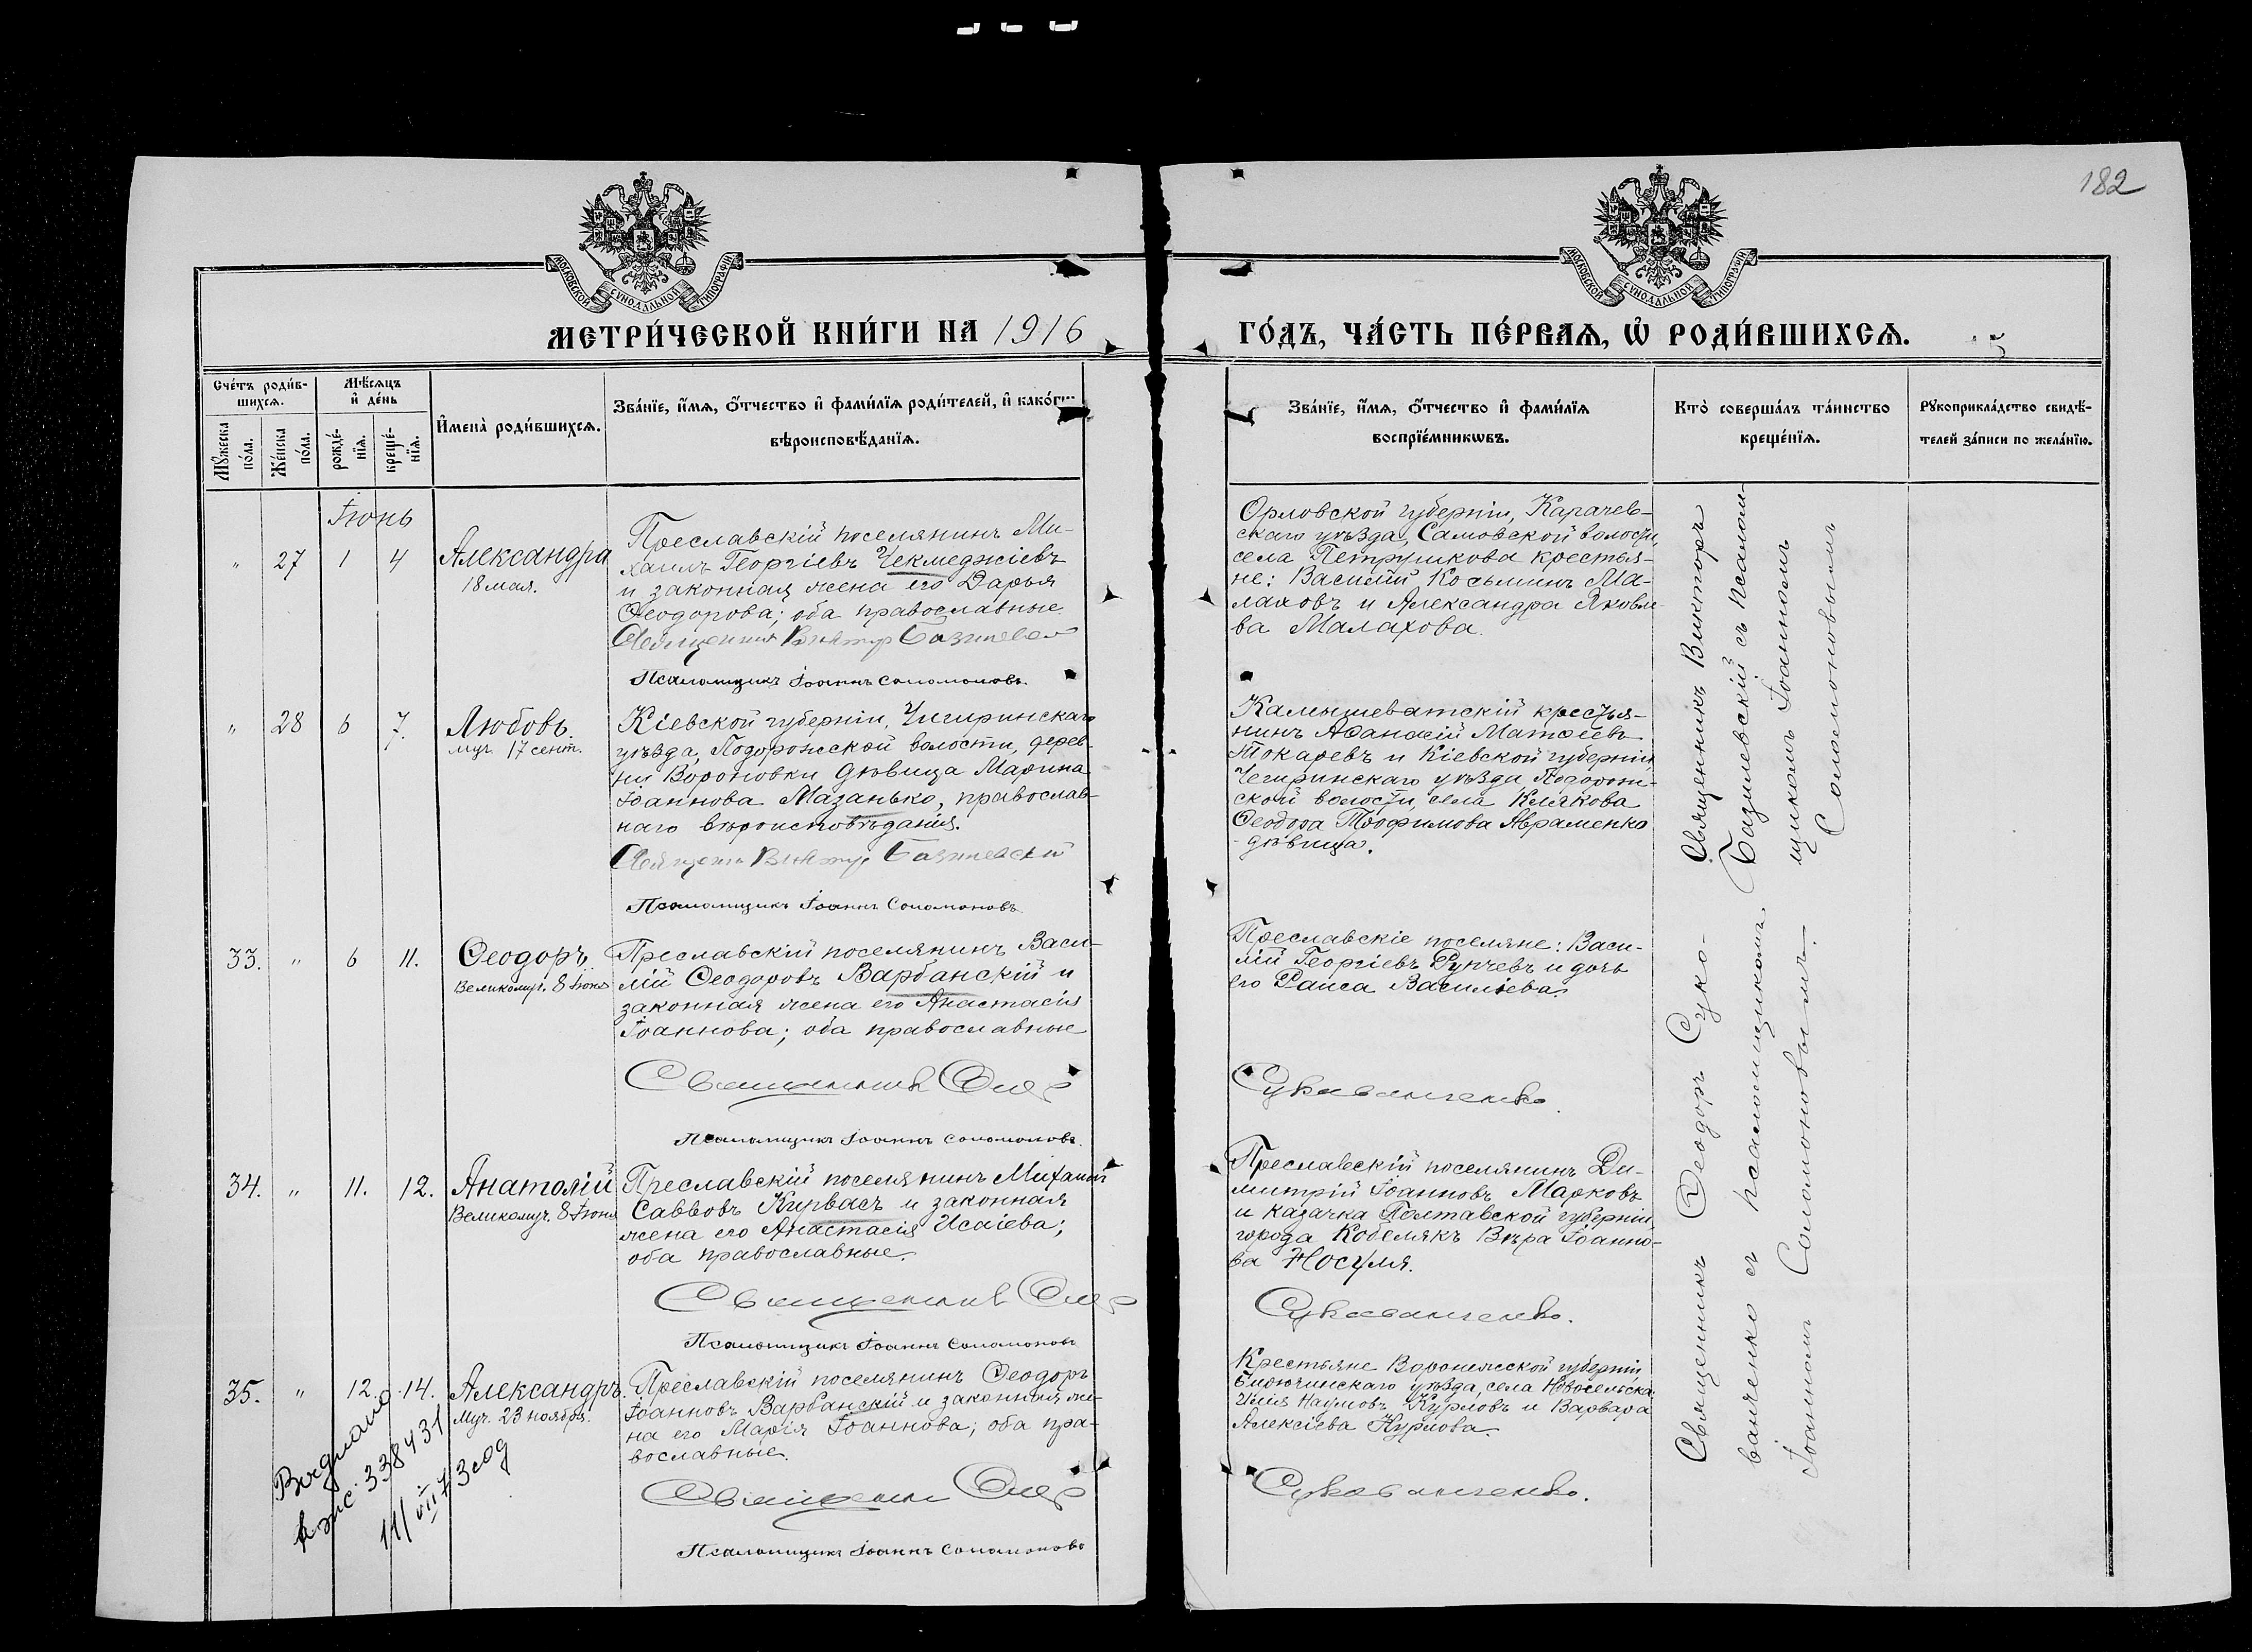 182
МОСКОВСКОЙ СУНОДАЛЬНОЙ ТИПОГРАФІИ
МОСКОВСКОЙ СУНОДАЛЬНОЙ ТИПОГРАФІИ
МЕТРИ́ЧЕСКОЙ КНИ́ГИ НА 1916
ГО́ДЪ, ЧА́СТЬ ПЕ́РВАѦ, Ѽ РОДИ́ВШИХСѦ.
Сче́тъ роди́в-
шихсѧ.
Мꙋ́жеска
по́ла.
Же́нска
по́ла.
Мѣ́сѧцъ
и҆ де́нь
рожде́-
нїѧ.
креще́-
нїѧ.
И҆мена̀ роди́вшихсѧ.
Зва́нїе, и҆́мѧ, ѻ҆́тчество и҆ фами́лїѧ роди́телей, и҆ како́гѡ
вѣроисповѣ́данїѧ.
Зва́нїе, и҆́мѧ, ѻ҆́тчество и҆ фами́лїѧ
воспрїе́мникѡвъ.
Кто̀ соверша́лъ та́инство
креще́нїѧ.
Рꙋкоприкла́дство свидѣ́-
телей за́писи по жела́нїю.
Іюнь
" 27 1 4
Александра
18 мая.
Преславскій поселянинъ Ми-
хаилъ Георгіевъ Чекмеджіевъ
и законная жена его Дарья
Ѳеодорова; оба православные
Священникъ Викторъ Базилевскій
Псаломщикъ Іоаннъ Соломоновъ.
Орловской губерніи, Карачев-
скаго уѣзда, Самовской волости,
села Петрушкова крестья-
не: Василій Косьминъ Ма-
лаховъ и Александра Яковле-
ва Малахова.
" 28 6 7.
Любовь.
муч. 17 сент.
Кіевской губерніи, Чигиринскаго
уѣзда, Подорожской волости, дерев-
ни Вороновки дѣвица Марина
Іоаннова Мазанько, православ-
наго вѣроисповѣданія.
Священникъ Викторъ Базилевскій
Псаломщикъ Іоаннъ Соломоновъ.
Камышеватскій крестья-
нинъ Аѳанасій Матѳіевъ
Токаревъ и Кіевской губерніи
Чегиринскаго уѣзда Подорож-
ской волости, села
Ѳеодора Трофимова Авраменко
дѣвица.
33. " 6 11.
Ѳеодоръ
Великомуч. 8 Іюня
Преславскій поселянинъ Васи-
лій Ѳеодоровъ Варбанскій и
законная жена его Анастасія
Іоаннова; оба православные
Священникъ Ѳеод.
Псаломщикъ Іоаннъ Соломоновъ.
Преславскіе поселяне: Васи-
лій Георгіевъ Рупчевъ и дочь
его Раиса Васильева.
Сукованченко.
34. " 11. 12.
Анатолій
Великомуч. 8 Іюня
Преславскій поселянинъ Михаилъ
Саввовъ Кирвасъ и законная
жена его Анастасія Исаіева;
оба православные.
Священникъ Ѳеод.
Псаломщикъ Іоаннъ Соломоновъ
Преславскій поселянинъ Ди-
митрій Іоанновъ Марковъ
и казачка Полтавской губерніи,
города Кобелякъ Вѣра Іоанно-
ва Носуля.
Сукованченко.
35. " 12. 14.
Александръ.
Муч. 23 ноября.
Преславскій поселянинъ Ѳеодоръ
Іоанновъ Варбанскій и законная же-
на его Марія Іоаннова; оба пра-
вославные.
Священникъ Ѳеод.
Псаломщикъ Іоаннъ Соломоновъ
Крестьяне Воронежской губерніи,
Бирючинскаго уѣзда, села Новосельска:
Илія Наумовъ Курловъ и Варвара
Алексіева Курлова.
Сукованченко.
338431
11/VII 73 год
Священникъ Викторъ
Базилевскій съ псалом-
щикомъ Іоанномъ
Соломоновымъ
Священникъ Ѳеодоръ Суко-
ванченко съ псаломщикомъ
Іоанномъ Соломоновымъ.